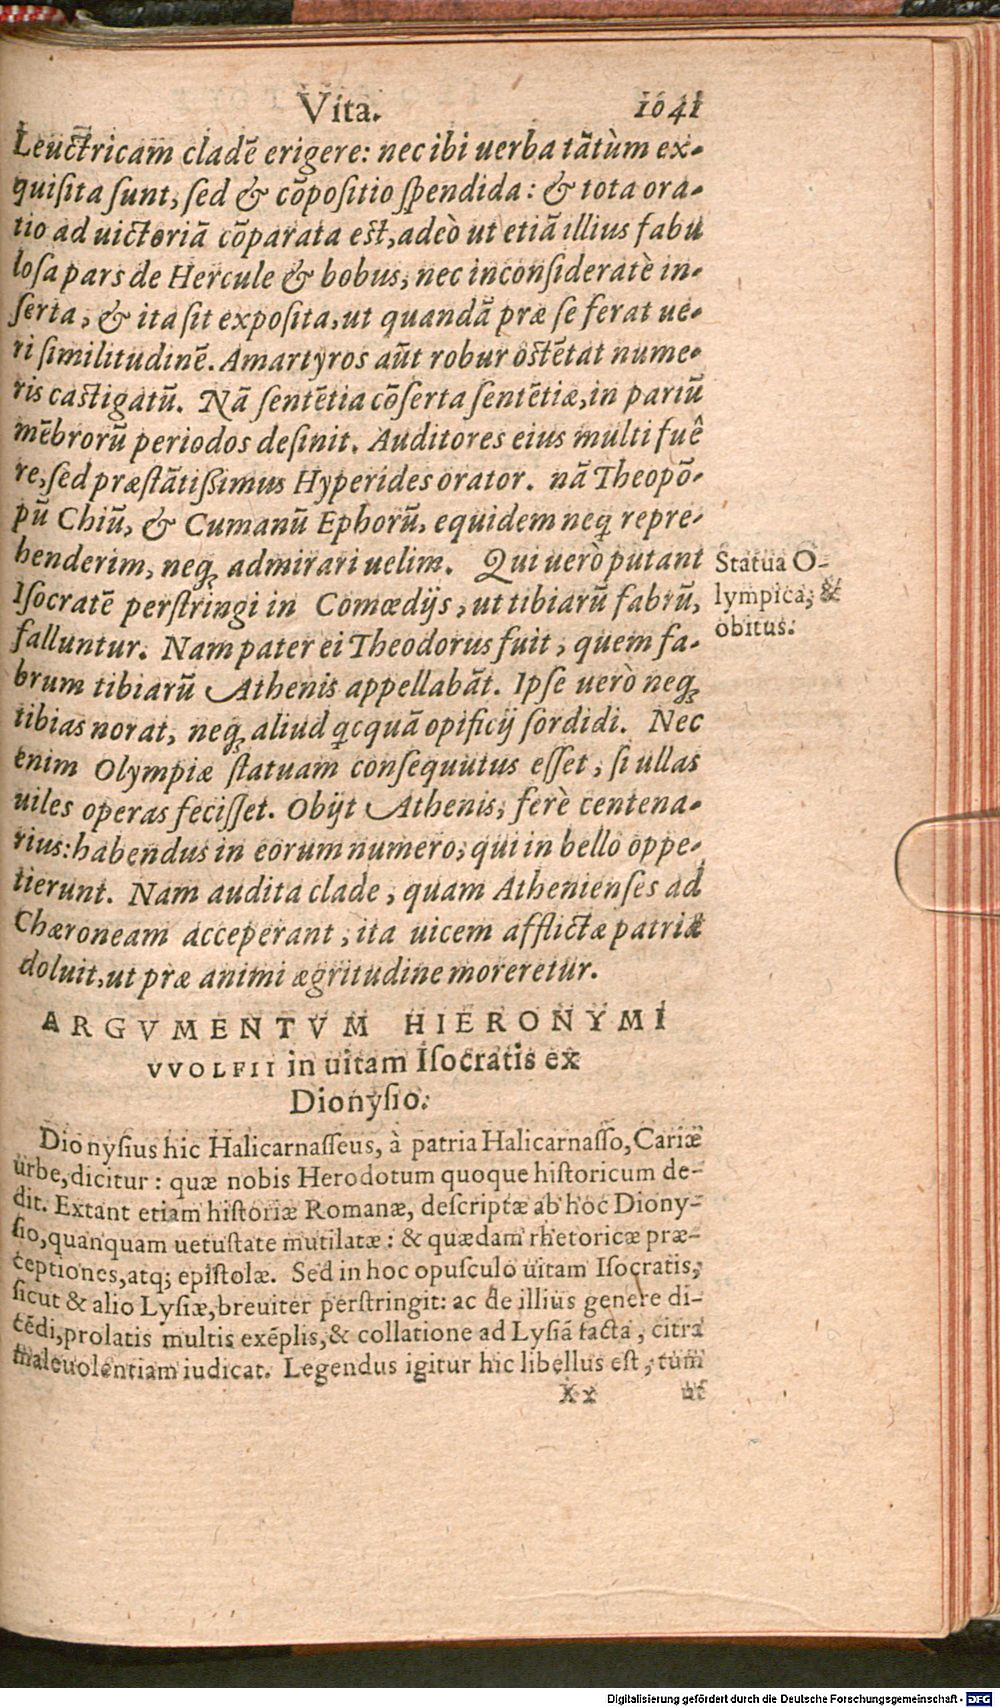 Vita. 1041
Leuctricam cladē erigere: nec ibi uerba tātùm ex-
quiſita ſunt, ſed & cōpoſitio ſpendida: & tota ora-
tio ad uictoriā cōparata eſt, adeò ut etiā illius fabu
loſa pars de Hercule & bobus, nec inconſideratè in-
ſerta, & ita ſit expoſita, ut quandā præ ſe ferat ue-
ri ſimilitudinē. Amartyros aūt robur oſtētat nume-
ris caſtigatū. Nā ſentētia cōſerta ſentētiæ, in pariū
mēbrorū periodos deſinit. Auditores eius multi fuê
re, ſed præſtātiſſimus Hyperides orator. nā Theopō-
pū Chiū, & Cumanū Ephorū, equidem neq; repre-
henderim, neq; admirari uelim. Qui uerò putant
Iſocratē perſtringi in Comœdijs, ut tibiarū fabrū,
falluntur. Nam pater ei Theodorus fuit, quem fa-
brum tibiarū Athenis appellabāt. Ipſe uerò neq;
tibias norat, neq; aliud qcquā opificij ſordidi. Nec
enim Olympiæ ſtatuam conſequutus eſſet, ſi ullas
uiles operas feciſſet. Obijt Athenis, ferè centena-
rius: habendus in eorum numero, qui in bello oppe-
tierunt. Nam audita clade, quam Athenienſes ad
Chæroneam acceperant, ita uicem afflictæ patriæ
doluit, ut præ animi ægritudine moreretur.
Statua O-
lympica, &
obitus.
ARGVMENTVM HIERONYMI
VVOLFII in uitam Iſocratis ex
Dionyſio.
Dionyſius hic Halicarnaſſeus, à patria Halicarnaſſo, Cariæ
urbe, dicitur: quæ nobis Herodotum quoque hiſtoricum de-
dit. Extant etiam hiſtoriæ Romanæ, deſcriptæ ab hoc Diony-
ſio, quanquam uetuſtate mutilatæ: & quædam rhetoricæ præ-
ceptiones, atq; epiſtolæ. Sed in hoc opuſculo uitam Iſocratis,
ſicut & alio Lyſiæ, breuiter perſtringit: ac de illius genere di-
cēdi, prolatis multis exēplis, & collatione ad Lyſiā facta, citra
maleuolentiam iudicat. Legendus igitur hic libellus eſt, tum
Xx ut
Digitalisierung gefördert durch die Deutsche Forschungsgemeinschaft - DFG